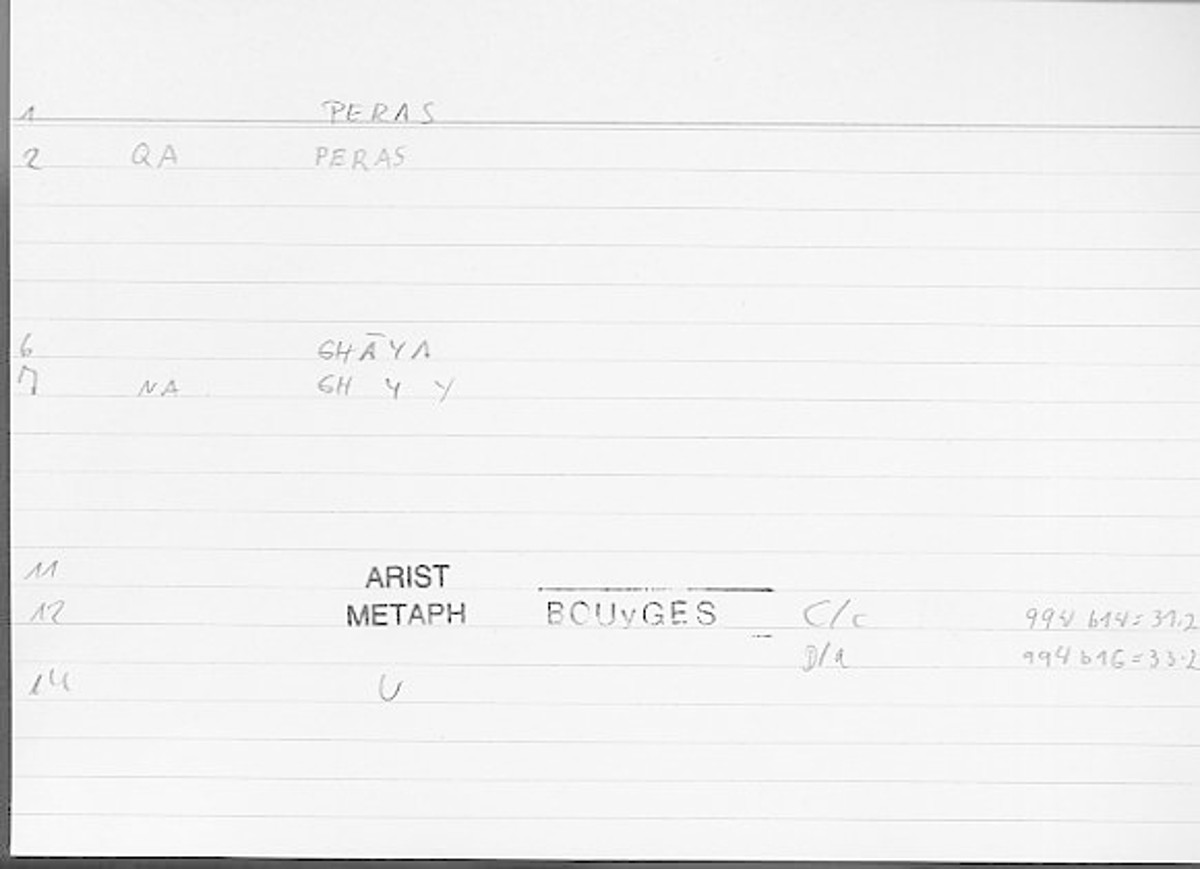 1 PERAS
2 QA PERAS
6 GHĀYA
7 NA GH Y Y
11 ARIST
12 METAPH BOUyGES C/c 994 b14 = 31.2
D/a 994 b16 = 33.2
14 U